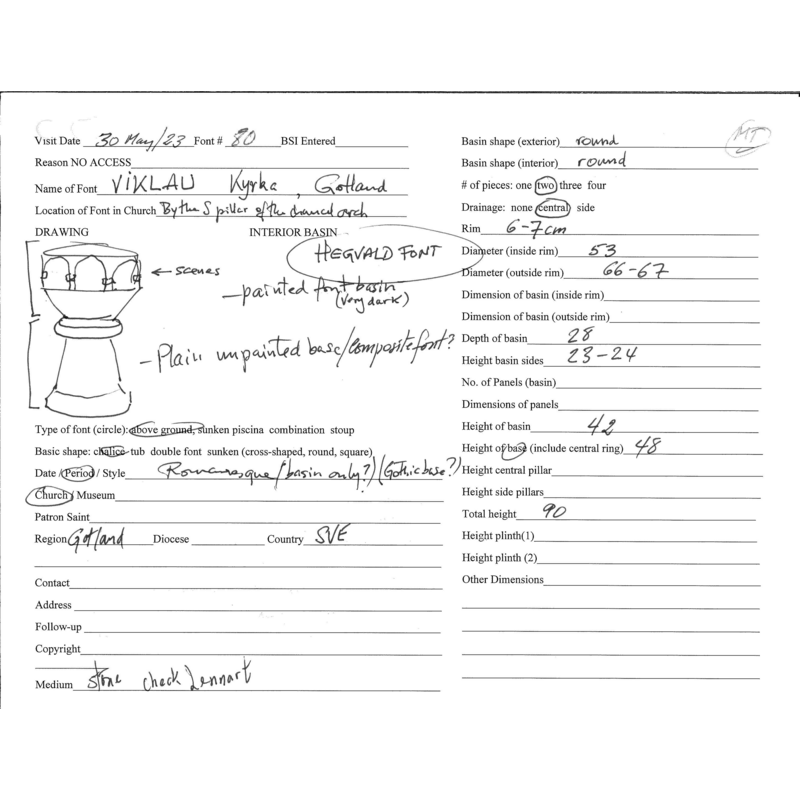 Visit Date 30 May/23 Font # 80 BSI Entered
Reason NO ACCESS
Name of Font VIKLAU Kyrka, Gotland
Location of Font in Church By the S pillar of the chancel arch
DRAWING INTERIOR BASIN
HEGVALD FONT
← scenes
— painted font basin
(very dark)
— Plain unpainted base/composite font?
Type of font (circle): above ground, sunken piscina combination stoup
Basic shape: chalice tub double font sunken (cross-shaped, round, square)
Date / Period / Style Romanesque/(basin only?) (Gothic base?)
Church / Museum
Patron Saint
Region Gotland Diocese Country SVE
Contact
Address
Follow-up
Copyright
Medium stone check Lennart
MT
Basin shape (exterior) round
Basin shape (interior) round
# of pieces: one two three four
Drainage: none central side
Rim 6-7cm
Diameter (inside rim) 53
Diameter (outside rim) 66-67
Dimension of basin (inside rim)
Dimension of basin (outside rim)
Depth of basin 28
Height basin sides 23-24
No. of Panels (basin)
Dimensions of panels
Height of basin 42
Height of base (include central ring) 48
Height central pillar
Height side pillars
Total height 90
Height plinth(1)
Height plinth (2)
Other Dimensions